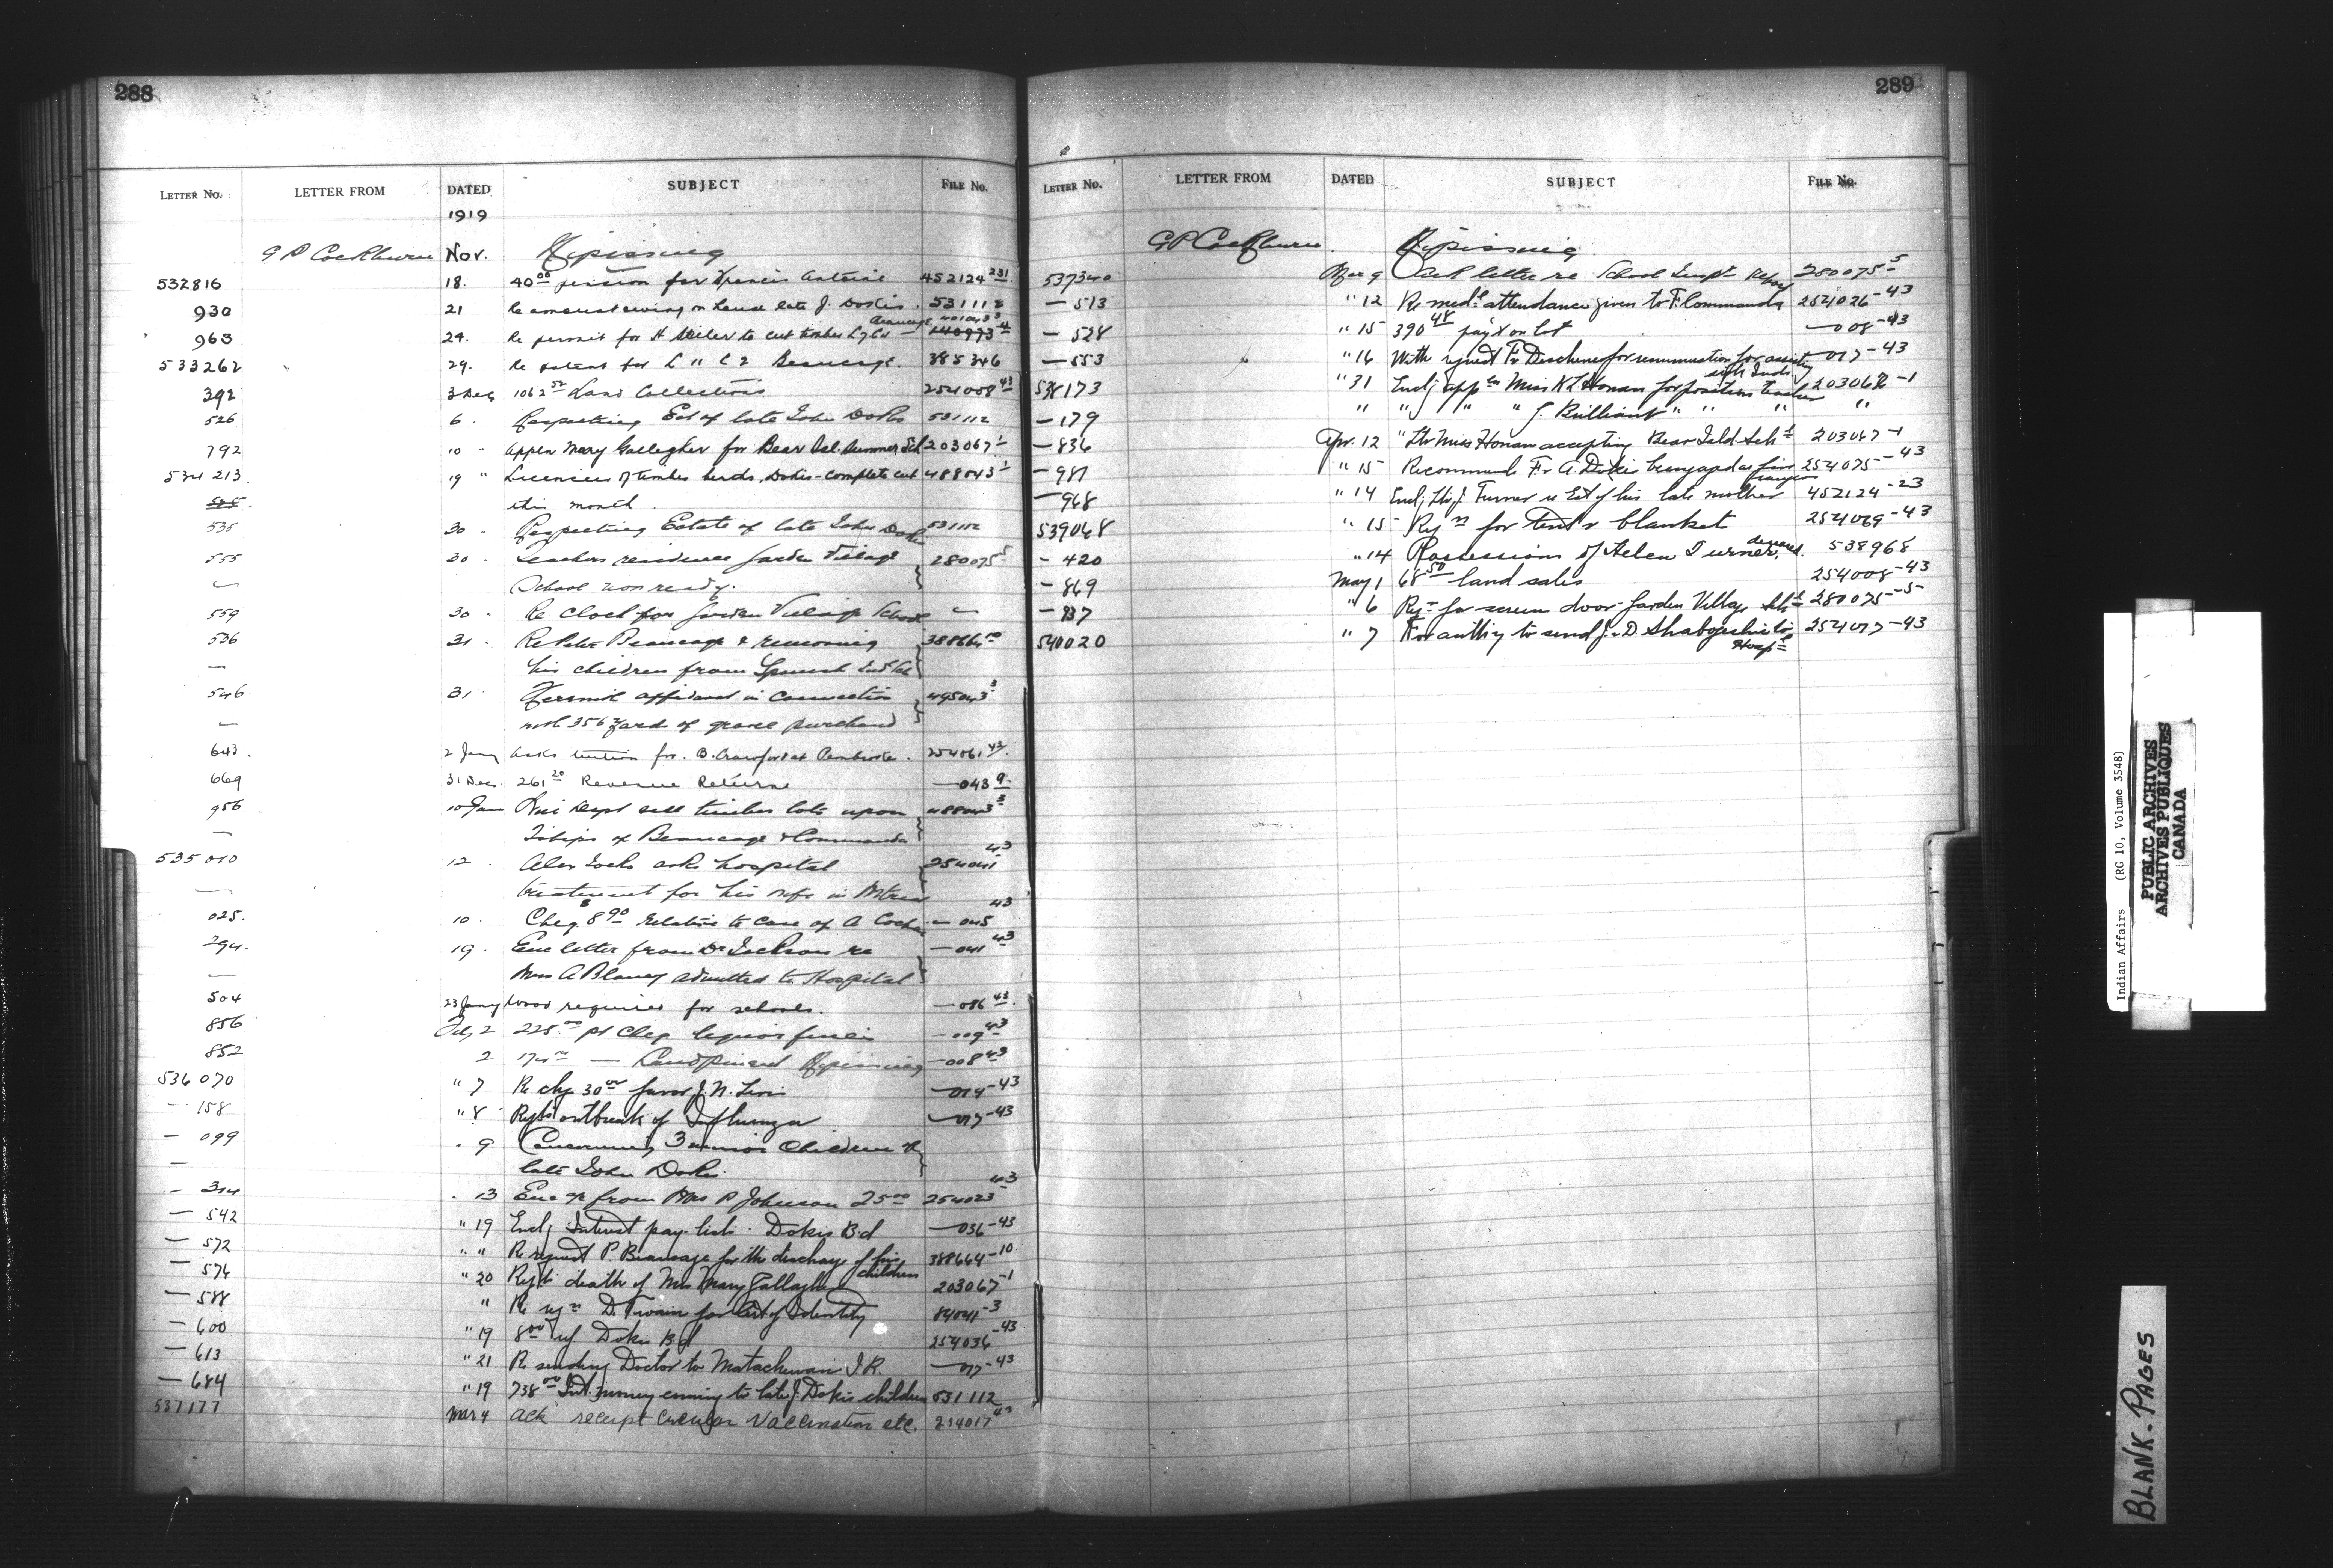 288
LETTER NO. LETTER FROM DATED SUBJECT FILE NO.
1919
G P Cockburn Nov. Nipissing
532816 18. 40 00 pension for Francis Antoine 452124 231
930 21 Re amount owing on Land late J. Dokis. 531112
963 24. Re permit for H to cut timber 401043 3
533262 29. Re patent for L " C 2 Beaucage. 385346
392 3 Dec 1062 52 Land Collections 254008 43
526 6. Respecting Est of late John Dokis 531112
792 10 " Appln Mary Gallagher for Bear Isl. Summer Sch 203067 1
534213. 19 " Licencees of timber berths, Dokis - complete cut 488043 1
this month.
535 30 - Respecting Estate of late John Dokis 531112
555 30 - Teachers residence Garden Village 280075 5
— School now ready.
559 30 - Re Clock for Garden Village School —
536 31 - Re Peter Beaucage & removing 388664 10
— his children from Spanish Ind Sch
546 31 affidavit in connection 495043 3
— with 356 yards of gravel purchased
643. 2 Jany Asks tuition for. B. Crawford at Pembroke. 254061 43.
669 31 Dec. 261 20 Revenue Returns — 043 9.
956 10 Jan Dept sell timber lots upon 488043 3
— of Beaucage & Commanda
535010 12. Alex asks hospital 254041 43
— treatment for his wife in
025. 10. Cheq. 8 90 relative to case of A — 045 43
294. 19. Enc letter from Dr Jackson re — 041 43
— Mrs A Blaney admitted to Hospital
504 23 Jany Wood required for schools. — 086 43.
856 Feby 2 225 00 pt Cheq liquor fines — 009 43
852 2 174 — Land Nipissing — 008 43
536070 " 7 Re chq 30 00 favor J. N. — 014 - 43
— 158 " 8 Repts outbreak of Influenza — 017 - 43
— 099 " 9 Concerning 3 minor Children of
— late John Dokis.
— 314 " 13 Enc from Mrs P Johnson 25 00 254023 43
— 542 " 19 Encl Interest pay lists - Dokis Bd — 036 - 43
— 572 " " Re request P Beaucage for the discharge of his children 388664 - 10
— 576 " 20 Repts death of Mrs Mary Gallagher 203067 - 1
— 588 " Re D. Twain for Cert of Identity 84041 - 3
— 600 " 19 8 00 Dokis Bd 254036 - 43
— 613 " 21 Re sending Doctor to Matachewan I.R. — 017 - 43
— 684 " 19 738 00 Int. money coming to late J. Dokis children 531112
537177 Mar 4 Ack receipt circular Vaccination etc. 254017 43
289
LETTER NO. LETTER FROM DATED SUBJECT FILE NO.
G P Cockburn Nipissing
537340 Mar 9 Ack letter re School Inspt Report 280075 5
— 513 " 12 Re medl attendance given to F. Commanda 254026 - 43
— 528 " 15 390 48 pay't on lot — 008 - 43
— 553 " 16 With request Fr Deschene for renumeration for assisting sick Inds — 017 - 43
538173 " 31 Encl appln Miss K L Honan for position teacher 203067 - 1
— 179 " " " " " J. Brilliant " " " "
— 836 Apr. 12 " Ltr Miss Honan accepting Bear Isld. Schl 203067 - 1
— 981 " 15 Recommends Fr A. Dokis being apptd as fire 254075 - 43
— 968 " 14 Encl J. Turner re Est of his late mother 452124 - 23
539068 " 15 Reqn for Tent & blanket 254069 - 43
— 420 " 14 Possessions of Helen Turner, deceased. 538968
— 869 May 1 68 50 land sales 254008 - 43
— 937 " 6 Reqn for screen door Garden Village Schl 280075 - 5
540020 " 7 For authty to send J. D. to Hospl 254017 - 43
Indian Affairs (RG 10, Volume 3548)
PUBLIC ARCHIVES
ARCHIVES PUBLIQUES
CANADA
BLANK. PAGES